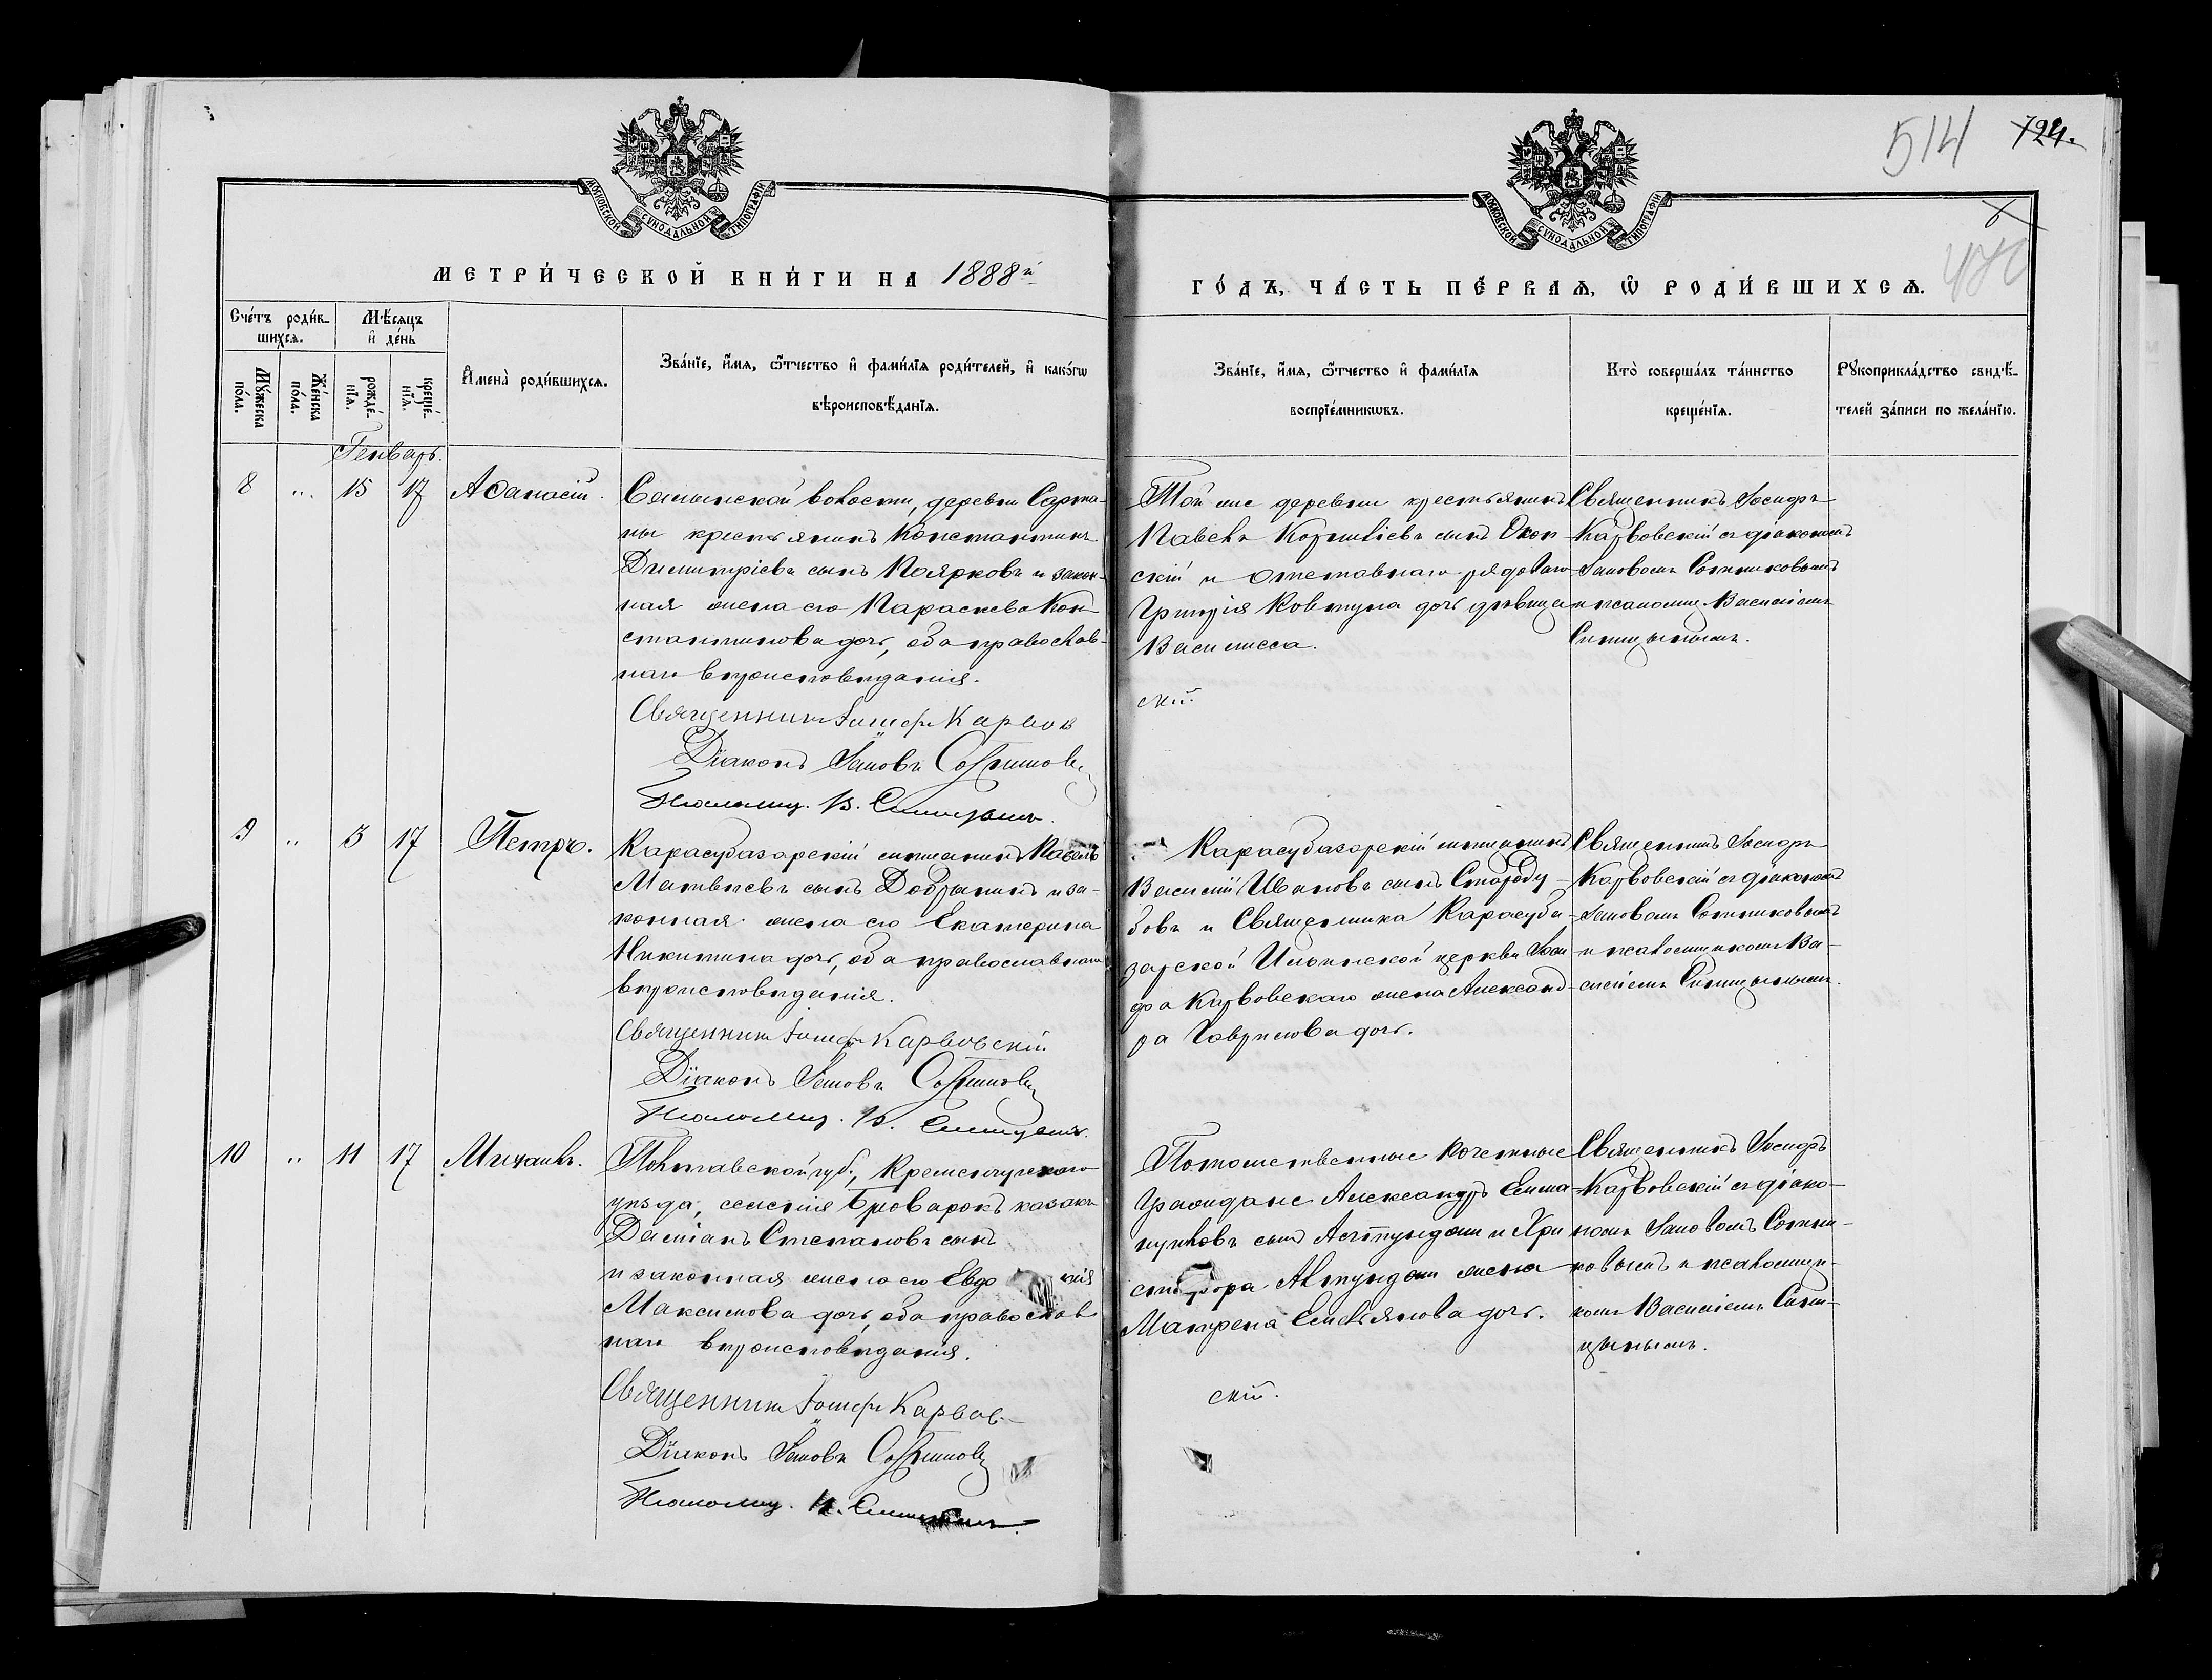 514 724.
МОСКОВСКОЙ СѴНОДАЛЬНОЙ ТИПОГРАФІИ
МОСКОВСКОЙ СѴНОДАЛЬНОЙ ТИПОГРАФІИ
МЕТРИ́ЧЕСКОЙ КНИ́ГИ НА 1888й
ГО́ДЪ, ЧА́СТЬ ПЕ́РВАѦ, Ѡ҆ РОДИ́ВШИХСѦ.
Сче́тъ роди́в-
шихсѧ.
Мѣ́сяцъ
и҆ де́нь
Мꙋ́жеска
по́ла.
Же́нска
по́ла.
рожде́-
нїѧ.
креще́-
нїѧ.
И҆мена̀ роди́вшихсѧ.
Зва́нїе, и҆́мѧ, ѻ҆́тчество и҆ фами́лїѧ роди́телей, и҆ како́гѡ
вѣроисповѣ́данїѧ.
Зва́нїе, и҆́мѧ, ѻ҆́тчество и҆ фами́лїѧ
воспрїе́мникѡвъ.
Кто̀ соверша́лъ та́инство
креще́нїѧ.
Рꙋкоприкла́дство свидѣ́-
телей за́писи по жела́нїю.
Генварь.
8 " 15 17 Аѳанасій.
деревни Сарта-
ны крестьянинъ Константинъ
Димитріевъ сынъ Поярковъ и закон-
ная жена его Параскева Кон-
стантинова дочь, оба православ-
наго вѣроисповѣданія.
Священникъ Іосифъ Карвов
Діаконъ Іаковъ Сотниковъ
Псаломщ. В. Синицынъ.
Той же деревни крестьянинъ
Павелъ Корниліевъ сынъ
скій и отставнаго рядоваго
Григорія Ковтуна дочь дѣвица
Василисса.
скій
Священникъ Іосифъ
Карвовскій съ діакономъ
Іаковомъ Сотниковымъ
и псаломщ. Василіемъ
Синицынымъ.
9 " 3 17 Петръ.
Карасубазарскій мѣщанинъ Павелъ
Матвѣевъ сынъ Добрынинъ и за-
конная жена его Екатерина
Никитина дочь, оба православнаго
вѣроисповѣданія.
Священникъ Іосифъ Карвовскій
Діаконъ Іаковъ Сотниковъ
Псаломщ. В. Синицынъ.
Карасубазарскій мѣщанинъ
Василій Ивановъ сынъ Староду-
бовъ и Священника Карасуба-
зарской Ильинской церкви Іоси-
фа Карвовскаго жена Александ-
ра Гаврилова дочь.
Священникъ Іосифъ
Карвовскій съ діакономъ
Іаковомъ Сотниковымъ
и псаломщикомъ Ва-
силіемъ Синицынымъ.
10 " 11 17 Михаилъ.
Полтавской губ., Кременчугскаго
уѣзда, селенія Броварокъ казакъ
Даміанъ Степановъ сынъ
и законная жена его Евдо кія
Максимова дочь, оба православ
наго вѣроисповѣданія.
Священникъ Іосифъ Карвов-
Діаконъ Іаковъ Сотниковъ
Псаломщ. В. Синицынъ.
Потомственные почетные
Граждане Александръ
сынъ и Хри
стофора Алтунджи жена
Матрена Емельянова дочь.
скій.
Священникъ Іосифъ
Карвовскій съ діако-
номъ Іаковомъ Сотни-
ковымъ и псаломщи-
комъ Василіемъ Сини-
цынымъ.